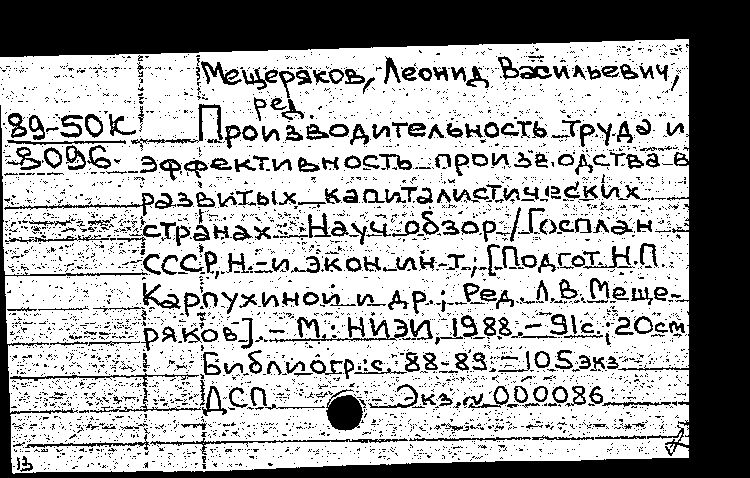 Мещеряков, Леонид Васильевич,
ред.
89-50К Производительность труда и
8096. эффективность производства в
развитых капиталистических
странах: Науч. обзор / Госплан
СССР, Н.-и. экон. ин-т; [Подгот. Н.П.
Карпухиной и др.; Ред. Л.В. Меще-
ряков]. - М.: НИЭИ, 1988. - 91с.; 20см
Библиогр.: с. 88-89. - 105 экз
ДСП. Экз. № 000086
13